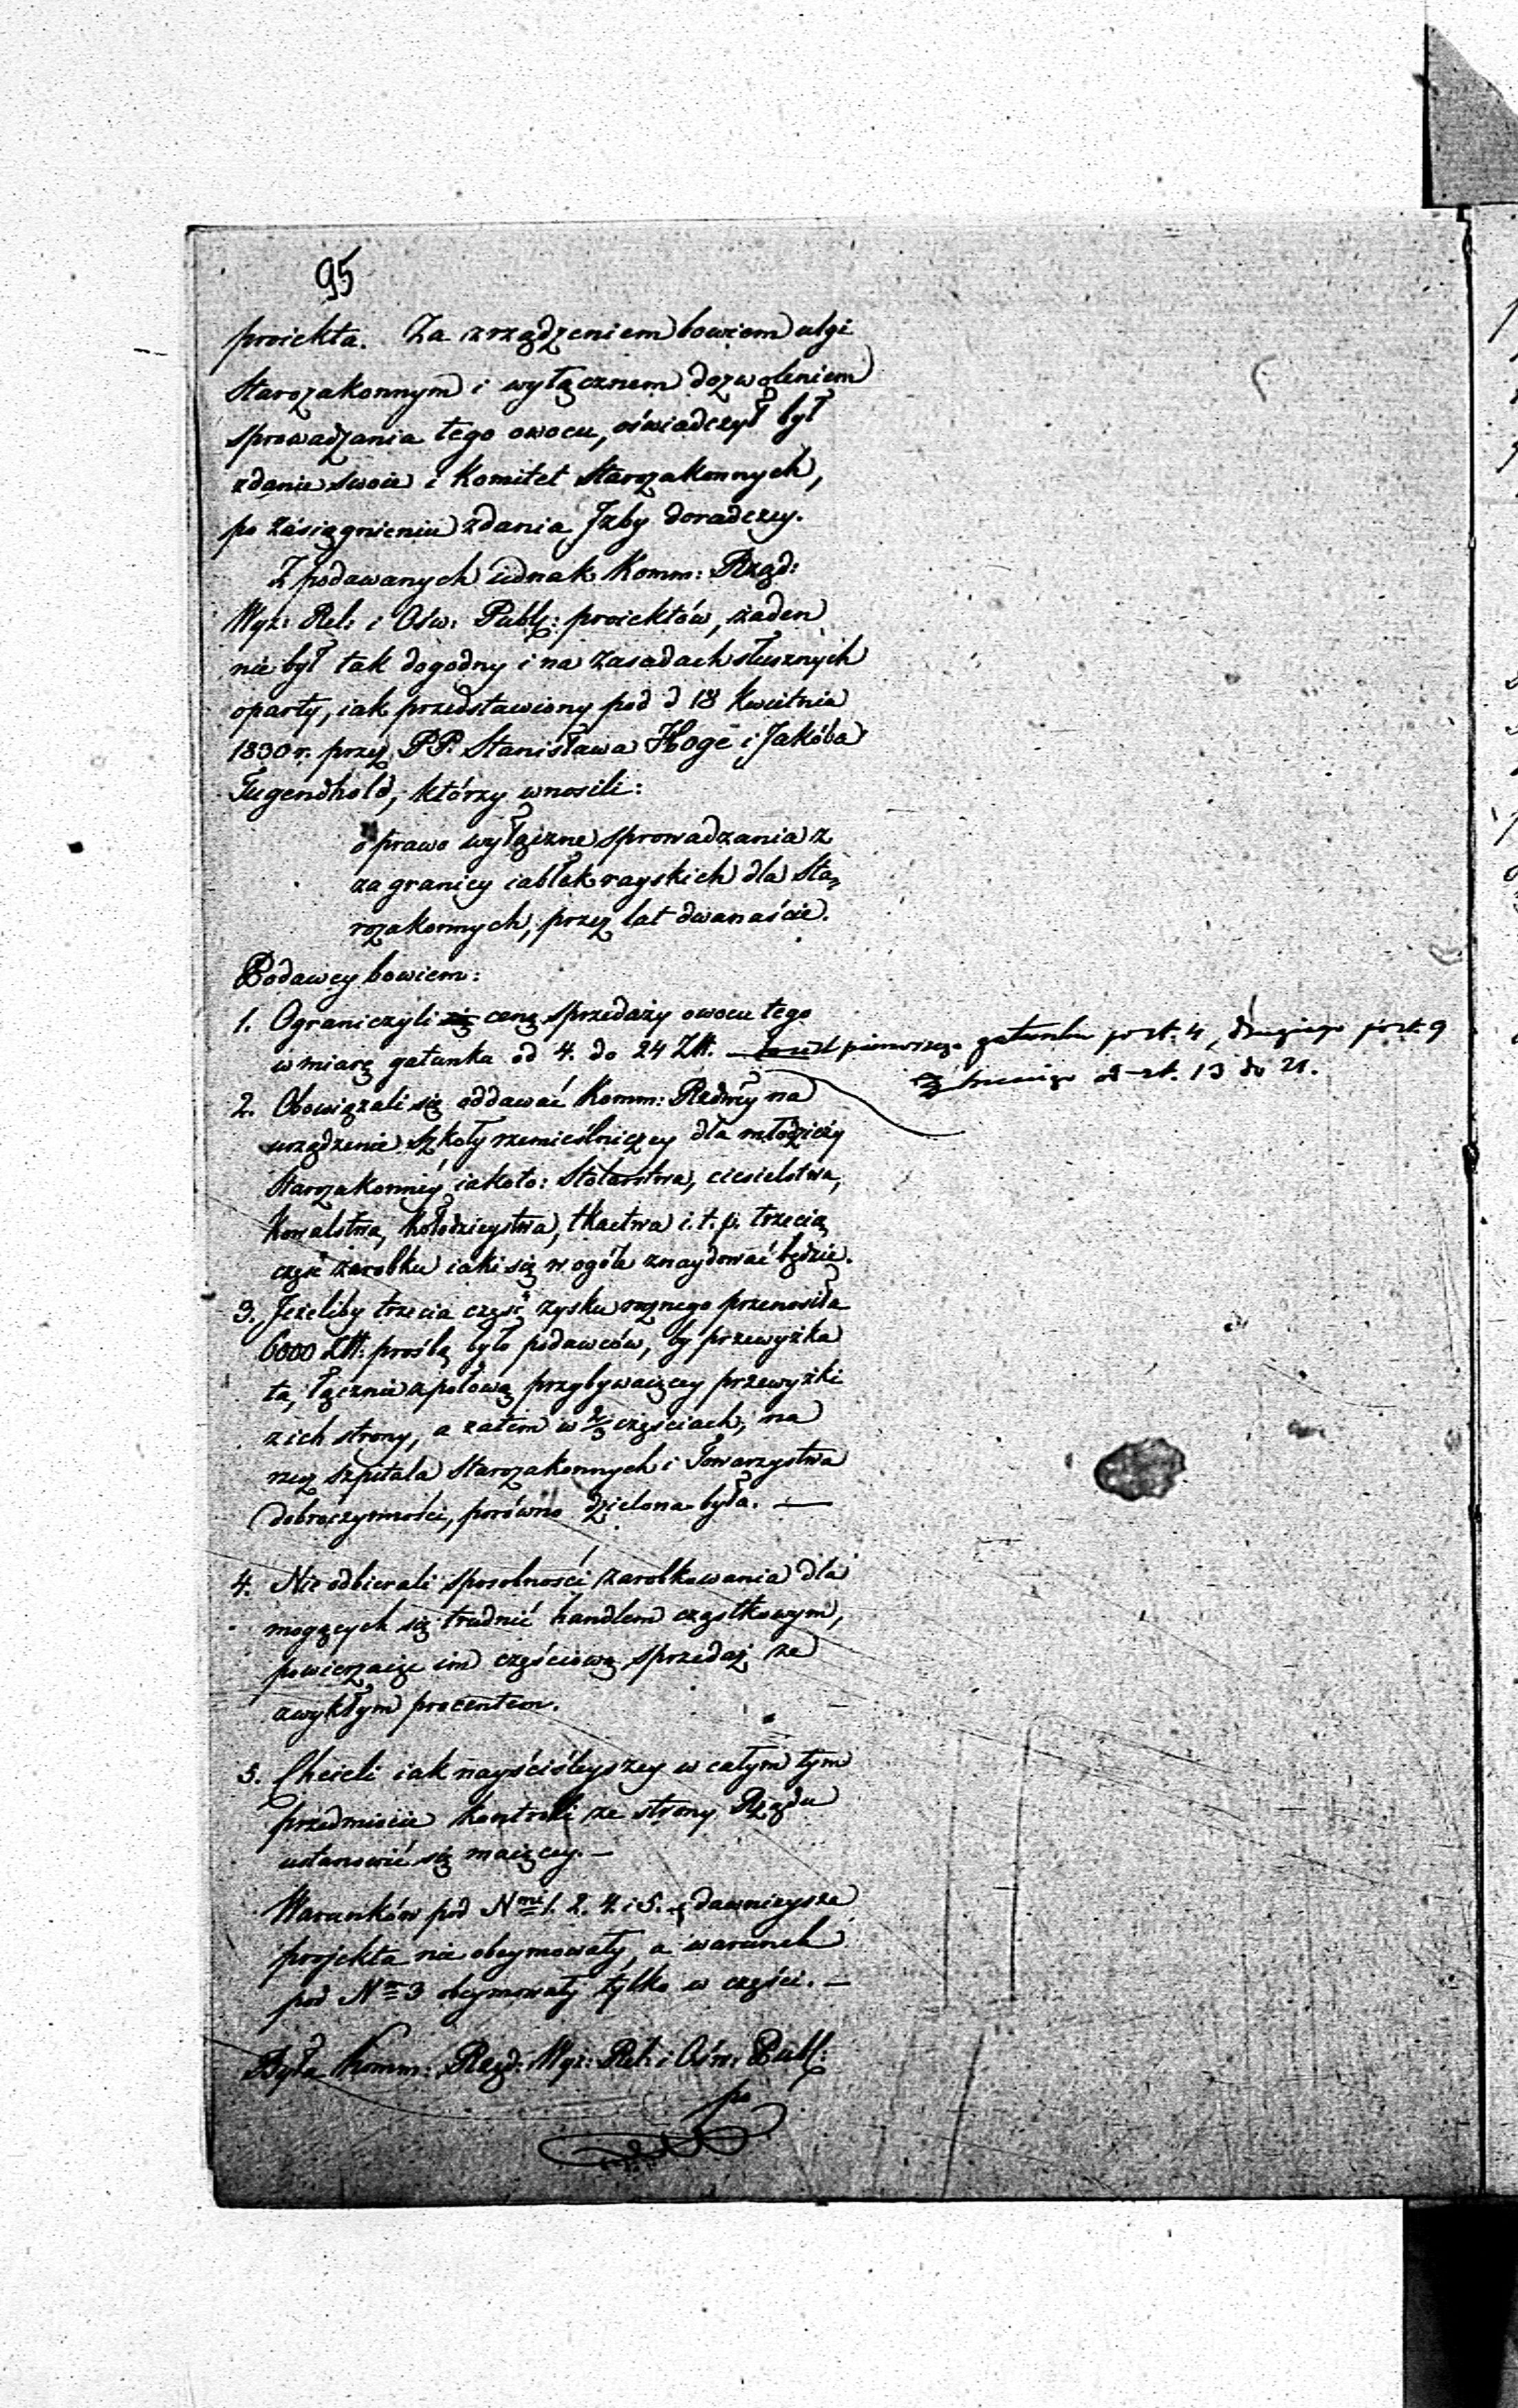 95
proiekta. Za zrządzeniem bowiem ulgi
Starozakonnym i wyłącznem dozwoleniem
sprowadzania tego owocu, oświadczył był
zdanie swoie i Komitet Starozakonnych,
po zasiągnieniu zdania Jzby doradczey.
Z podawanych iednak Komm: Rząd:
Wyz: Rel: i Ośw: Publ: proiektów, żaden
nie był tak dogodny i na zasadach słusznych
oparty, iak przedstawiony pod d 18 Kwietnia
1830 r. przez PP. Stanisława Hoge i Jakóba
Tugendhold, którzy wnosili:
o prawo wyłączne sprowadzania z
zagranicy iabłek rayskich dla Sta=
rozakonnych, przez lat dwanaście.
Podawcy bowiem:
1. Ograniczyli się cenę sprzedaży owocu tego
w miarę gatunku od 4. do 24 Złł. pierwszego gatunku po zł. 4, drugiego po zł. 9
trzeciego od zł. 13 do 21.
2. Obowiązali się oddawać Komm: Rządwéy na
urządzenie szkoły rzemieślniczey dla młodzieży
Starozakonnéy iakoto: Stolarstwa, ciesielstwa,
Kowalstwa, kołodzieystwa, tkactwa i. t. p. trzecią
część zarobku iaki się w ogóle znaydować będzie.
3. Jeżeliby trzecia część zysku rocznego przenosiła
6000 Złł: prośbą było podawców, by przewyżka
ta, łącznie z połową przybywaiącey przewyżki
z ich strony, a zatem w 2/3 częściach, na
rzecz szpitala Starozakonnych i Towarzystwa
dobroczynności, porówno dzielona była. —
4. Nie odbierali sposobności zarobkowania dla
mogących się trudnić handlem cząstkowym,
powierzaiąc im częściową sprzedaż za
zwykłym procentem.
5. Chcieli iak nayściśleyszey w całym tym
przedmiocie kontroli ze strony Rządu
ustanowić się maiącey. —
Warunków pod Nmi 1. 2. 4. i 5. dawnieysze
projekta nie obeymowały, a warunek
pod Nm 3 obeymowały tylko w części. —
Była Komm: Rząd: Wyz: Rel: i Ośw: Publ:
po